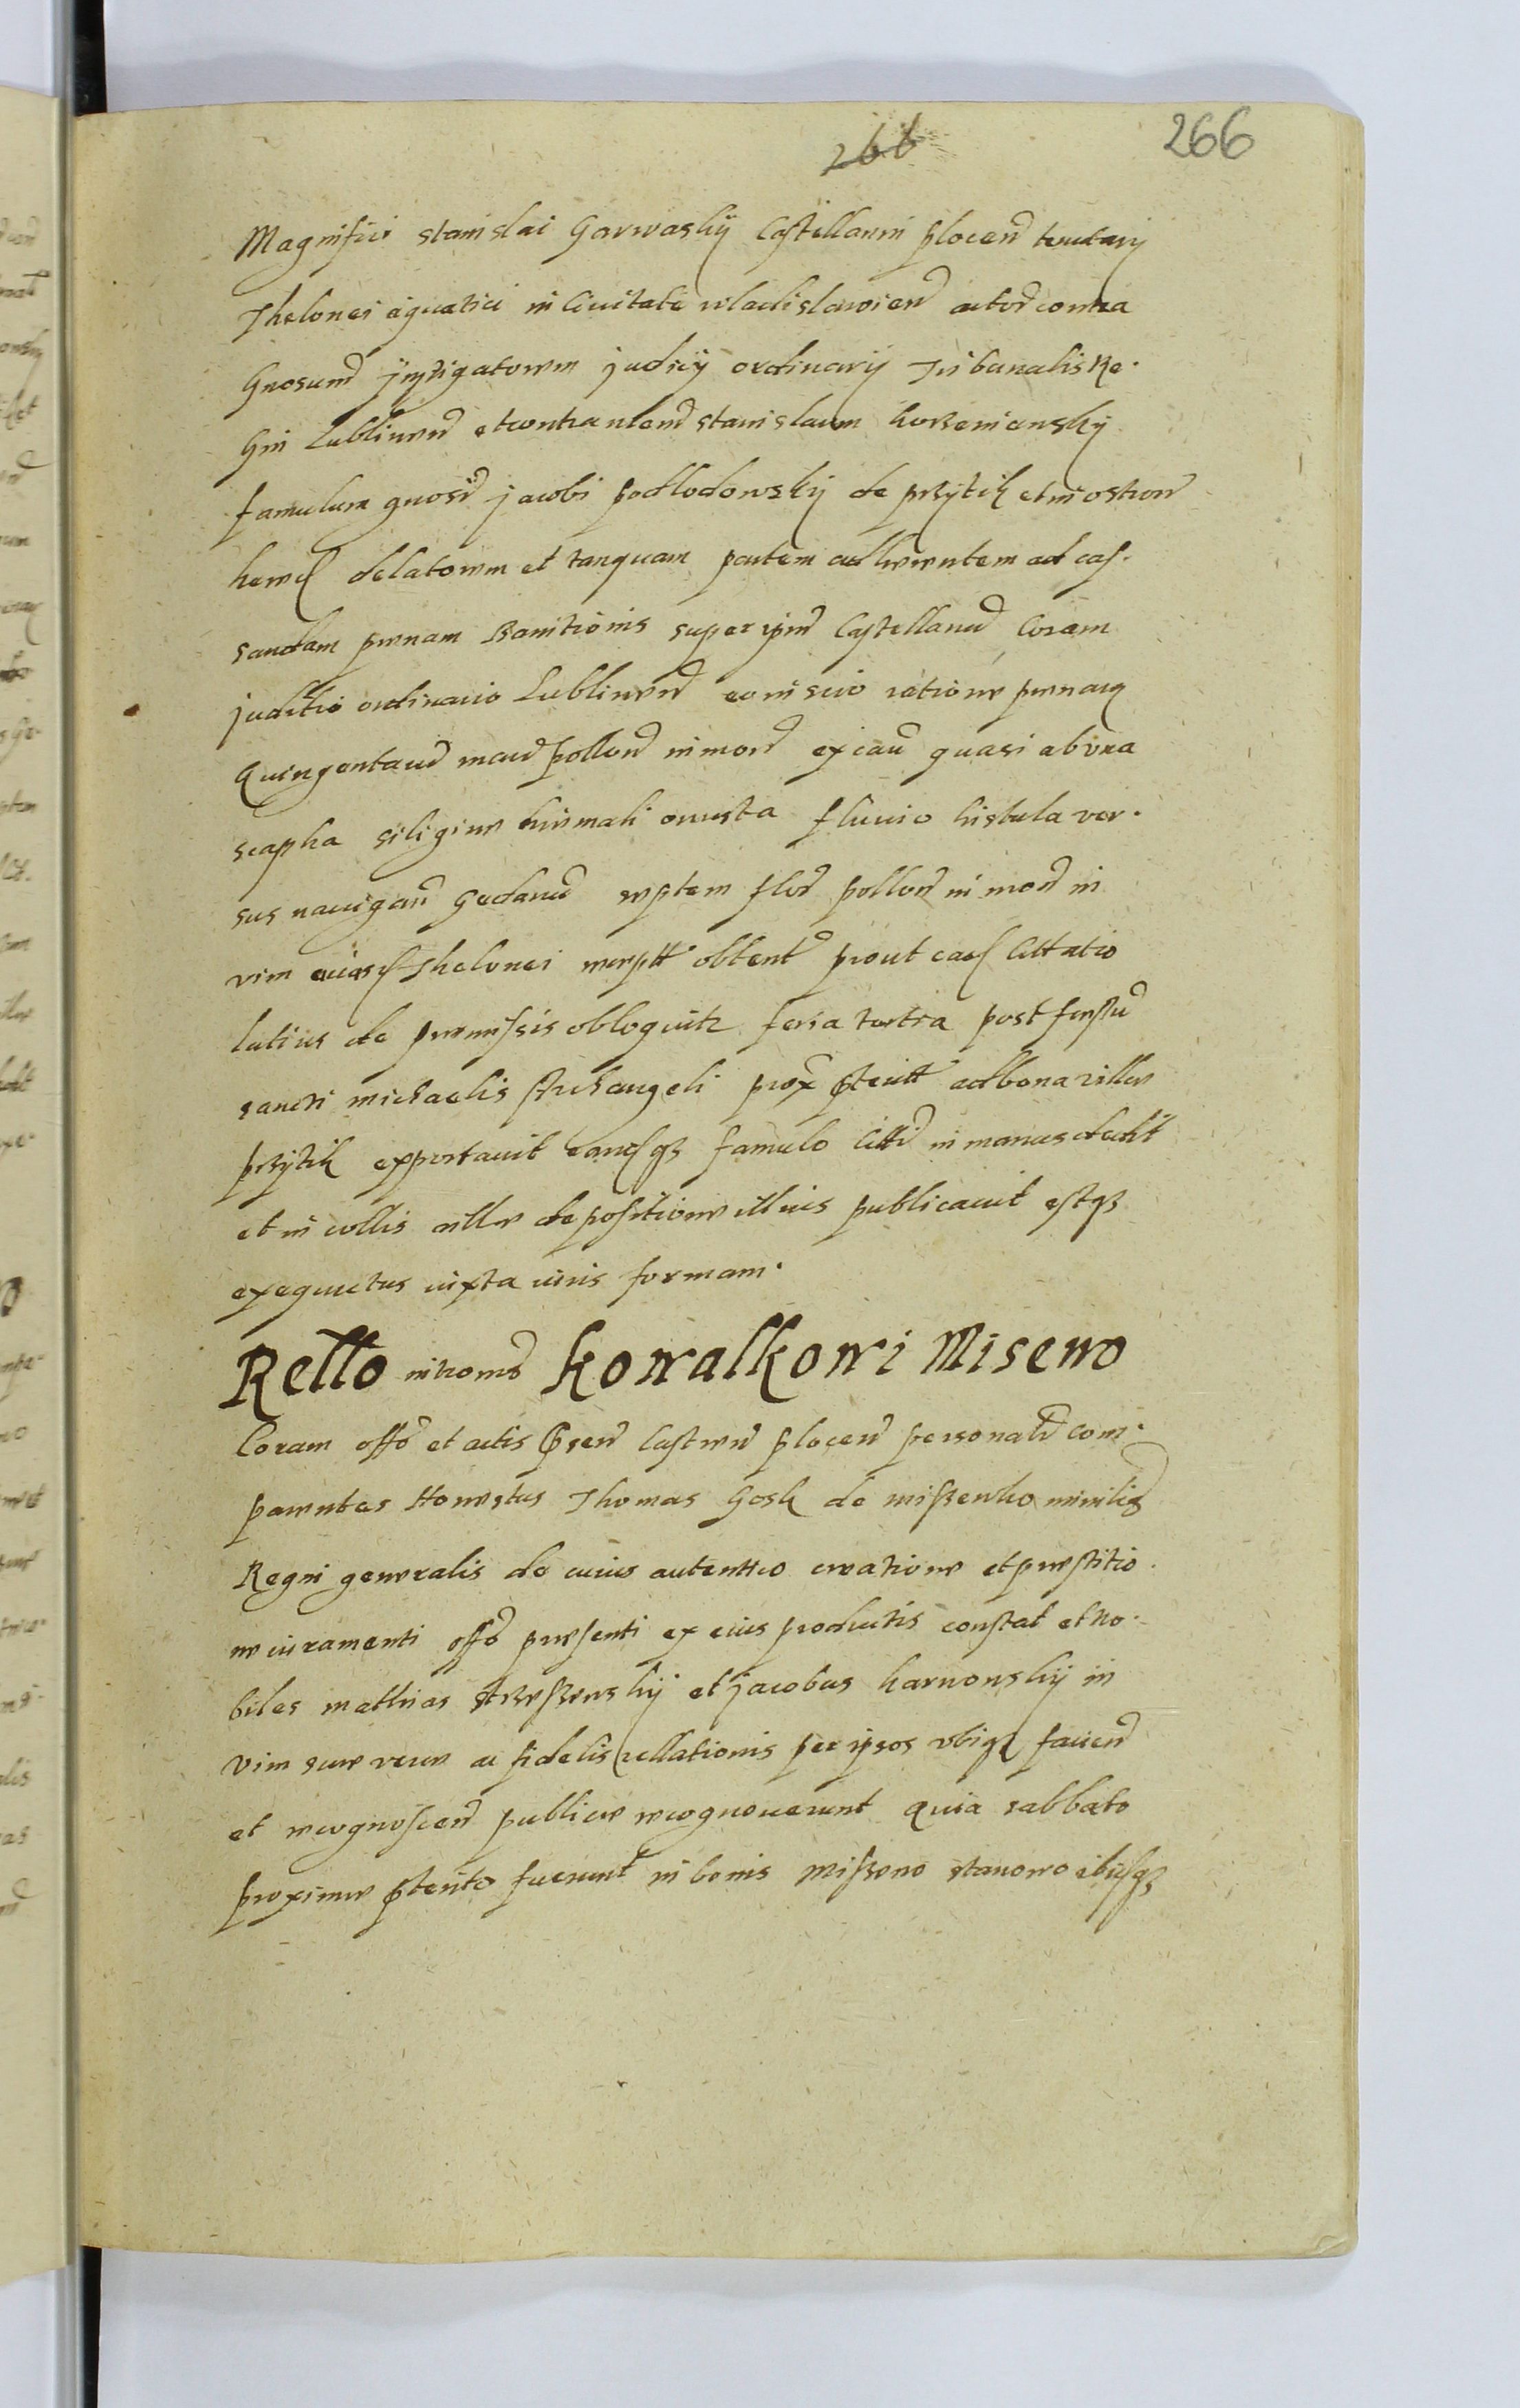 266
266
Magnifici Stanislai Garwasky Castellani plocen tenutary
Thelonei aquatici in Civitate wladislavien actor contra
Gnosum jnstigatorem judicy ordinary Tribunalis Re.
Gni Lublinen et contra nlem Stanislaum
famulum gnosi jacobi podlodowsky de przytik et in ostrow
delatorem et tanquam partem adherentem ad cas.
sandam penam Banitionis super ipm Castellanu Coram
juditio ordinario Lublinen eo niscio ratione penarum
Quingentaru marc pollon in mon ex cau quasi ab una
scapha siligine hiemali onusta fluuio histula ver.
sus navigan Gedanu septem flor pollon in mon in
vim Thelonei recept obtent prout ead Cittatio
latius de premissis obloquitr feria tertia post festu
sancti michaelis Archangeli prox pterit ad bona ville
przytik exportavit eandqz famulo in manus dedit
et in collis ville depositione illius publicavit estqz
exequutus iuxta iuris formam.
Rello introms Kowalkowi Misewo
Coram offo et actis pnsen Castren plocen personalr com.
parentes Honestus Thomas Gosk de miszewko minilis
Regni generalis de cuius autentico creatione et prestitio.
ne iuramenti offo presenti ex eius productis constat et no.
biles mathias et jacobus karnonsky in
vim sue vere ac fidelis rellationis per ipsos ubiqz facien
et recognoscen publice recognoverunt Quia sabbato
proxime pterito fuerunt in bonis Miszewo ibidqz